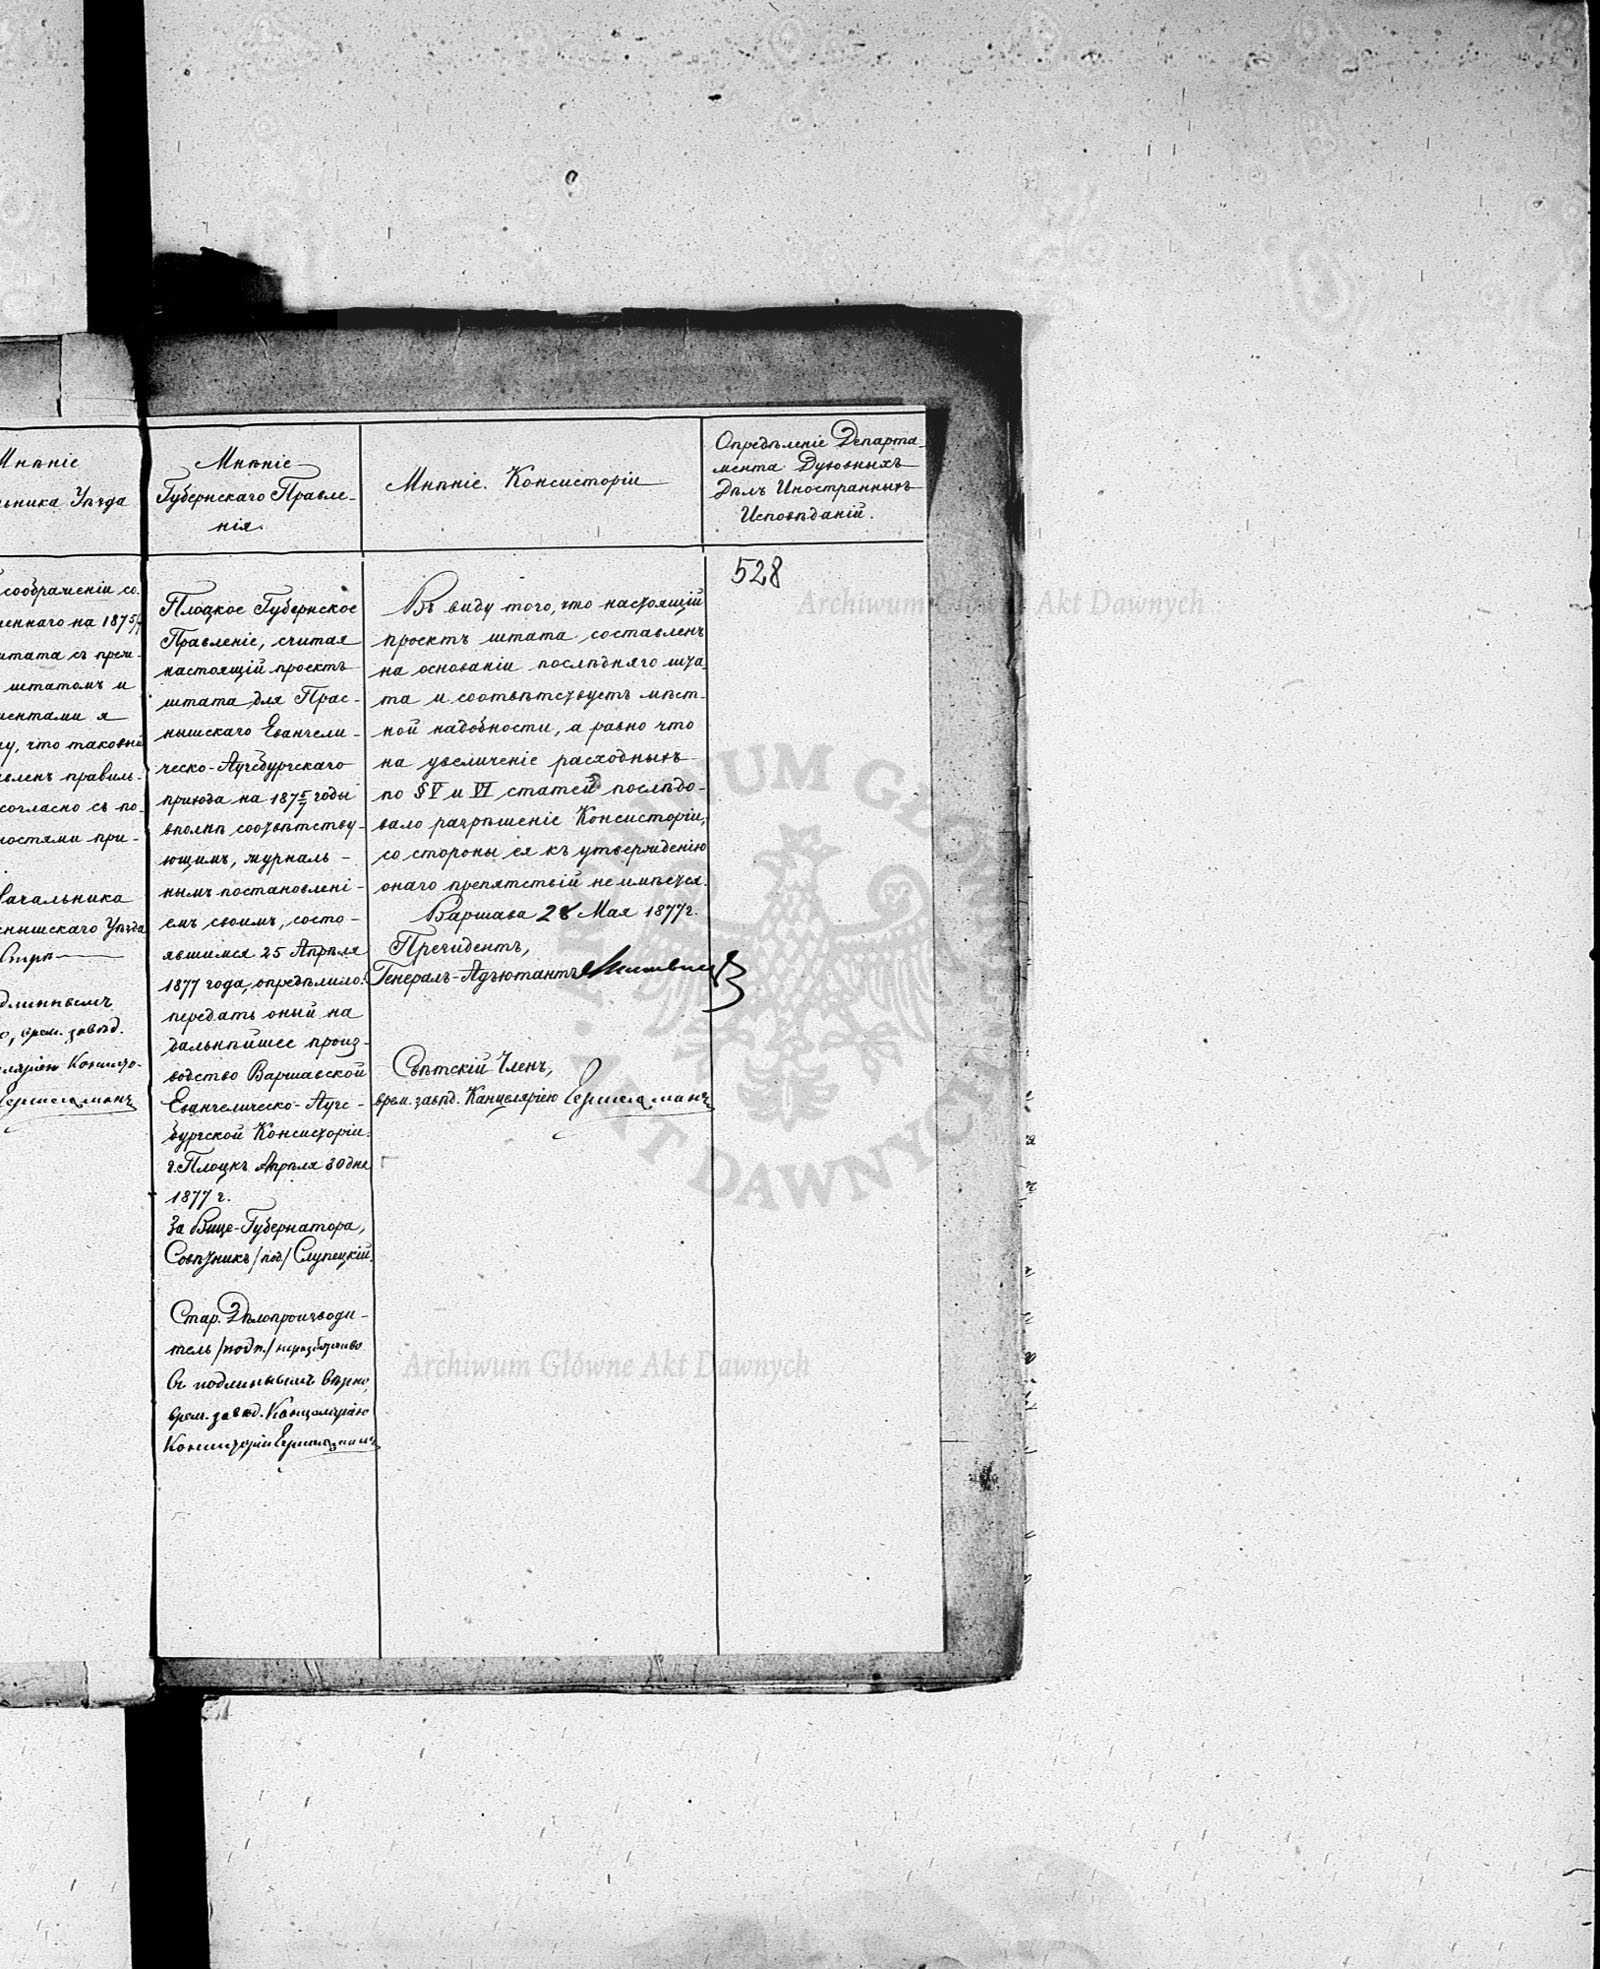 Мнѣніе
ьника Уѣзда
Мнѣніе
Губернскаго Правле-
нія.
Мнѣніе Консисторіи
Опредѣленіе Департа-
мента Духовныхъ
Дѣлъ Иностранныхъ
Исповѣданій.
соображеніи со
леннаго на 1875/7
штата съ
штатомъ и
ментами я
что таковый
вленъ правиль-
согласно съ по-
ностями при-
Начальника
снышскаго Уѣзда
врем. завѣд.
Плоцкое Губернское
Правленіе, считая
настоящій проектъ
штата для Прас-
нышскаго Евангели-
ческо-Аугсбургскаго
прихода на 1875/7 годы
вполнѣ соотвѣтству-
ющимъ, журналь-
нымъ постановлені-
емъ своимъ, состо-
явшимся 25 Апрѣля
1877 года, опредѣлило:
передать оный на
дальнѣйшее произ-
водство Варшавской
Евангелическо-Аугс-
бургской Консисторіи.
г. Плоцкъ Апрѣля 30 дня
1877 г.
За Вице-Губернатора,
Совѣтникъ /под/ Слупецкій.
Стар. Дѣлопроизводи-
тель /подп./ неразборчиво
Съ подлиннымъ вѣрно,
врем. завѣд. Канцеляріею
Консисторіи
Въ виду того, что настоящій
проектъ штата составленъ
на основаніи послѣдняго шта-
та и соотвѣтствуетъ мѣст-
ной надобности, а равно что
на увеличеніе расходныхъ
по § V и VI статей послѣдо-
вало разрѣшеніе Консисторіи,
со стороны ея къ утвержденію
онаго препятствій не имѣется.
Варшава 28 Мая 1877 г.
Президентъ,
Генералъ-Адъютантъ
Свѣтскій Членъ,
врем. завѣд. Канцеляріею
528
Archiwum Główne Akt Dawnych
ARCHIWUM GŁÓWNE
AKT DAWNYCH
Archiwum Główne Akt Dawnych